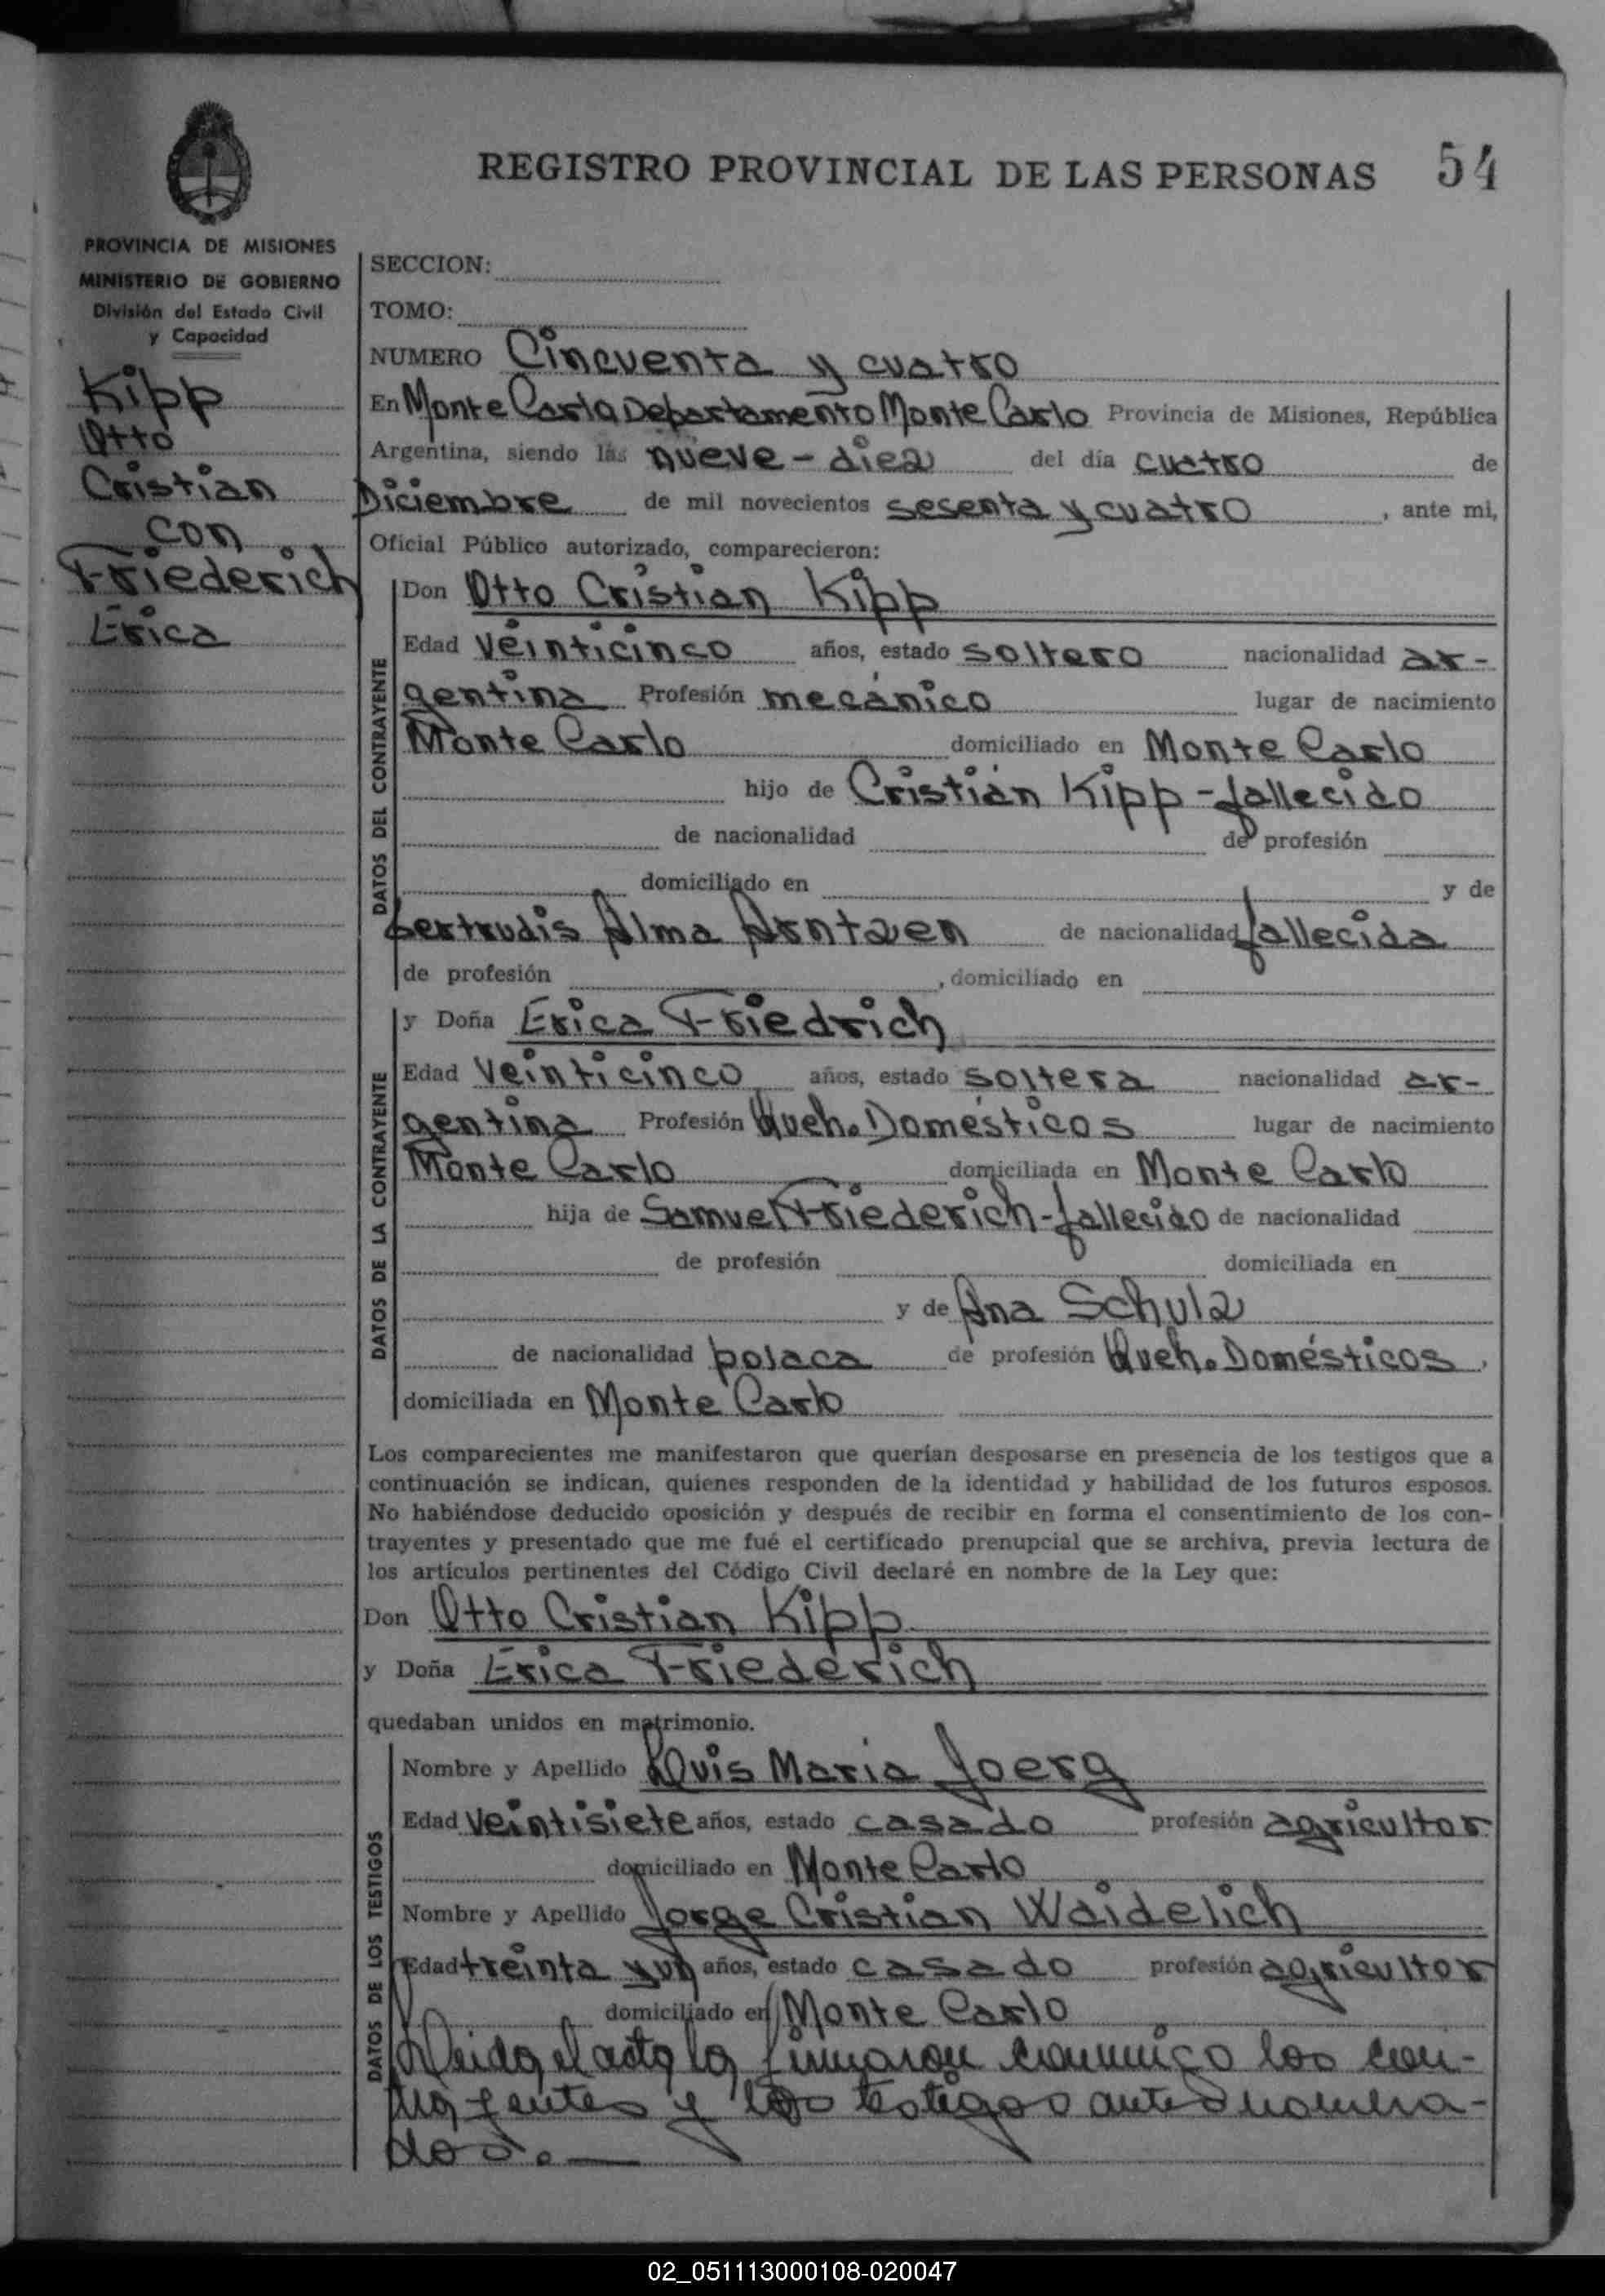 REGISTRO PROVINCIAL DE LAS PERSONAS 54
PROVINCIA DE MISIONES
MINISTERIO DE GOBIERNO
División del Estado Civil
y Capacidad
Kipp
Otto
Cristian
con
Friederich
Erica
SECCION:
TOMO:
NUMERO Cincuenta y cuatro
En Monte Carlo Departamento Monte Carlo Provincia de Misiones, República
Argentina, siendo las nueve - diez del día cuatro de
Diciembre de mil novecientos sesenta y cuatro, ante mi,
Oficial Público autorizado, comparecieron:
DATOS DEL CONTRAYENTE
Don Otto Cristian Kipp
Edad veinticinco años, estado soltero nacionalidad ar-
gentina Profesión mecánico lugar de nacimiento
Monte Carlo domiciliado en Monte Carlo
hijo de Cristián Kipp - fallecido
de nacionalidad de profesión
domiciliado en y de
Gertrudis Alma Arntzen de nacionalidad fallecida
de profesión , domiciliado en
DATOS DE LA CONTRAYENTE
y Doña Erica Friedrich
Edad veinticinco años, estado soltera nacionalidad ar-
gentina Profesión Queh. Domésticos lugar de nacimiento
Monte Carlo domiciliada en Monte Carlo
hija de Samuel Friederich - fallecido de nacionalidad
de profesión domiciliada en
y de Ana Schulz
de nacionalidad polaca de profesión Queh. Domésticos,
domiciliada en Monte Carlo
Los comparecientes me manifestaron que querían desposarse en presencia de los testigos que a
continuación se indican, quienes responden de la identidad y habilidad de los futuros esposos.
No habiéndose deducido oposición y después de recibir en forma el consentimiento de los con-
trayentes y presentado que me fué el certificado prenupcial que se archiva, previa lectura de
los artículos pertinentes del Código Civil declaré en nombre de la Ley que:
Don Otto Cristian Kipp
y Doña Erica Friederich
quedaban unidos en matrimonio.
DATOS DE LOS TESTIGOS
Nombre y Apellido Luis Maria Joerg
Edad veintisiete años, estado casado profesión agricultor
domiciliado en Monte Carlo
Nombre y Apellido Jorge Cristian Waidelich
Edad treinta y un años, estado casado profesión agricultor
domiciliado en Monte Carlo
Leida el acta la firmaron conmigo los con-
trayentes y los testigos antes nombra-
dos.
02_051113000108-020047